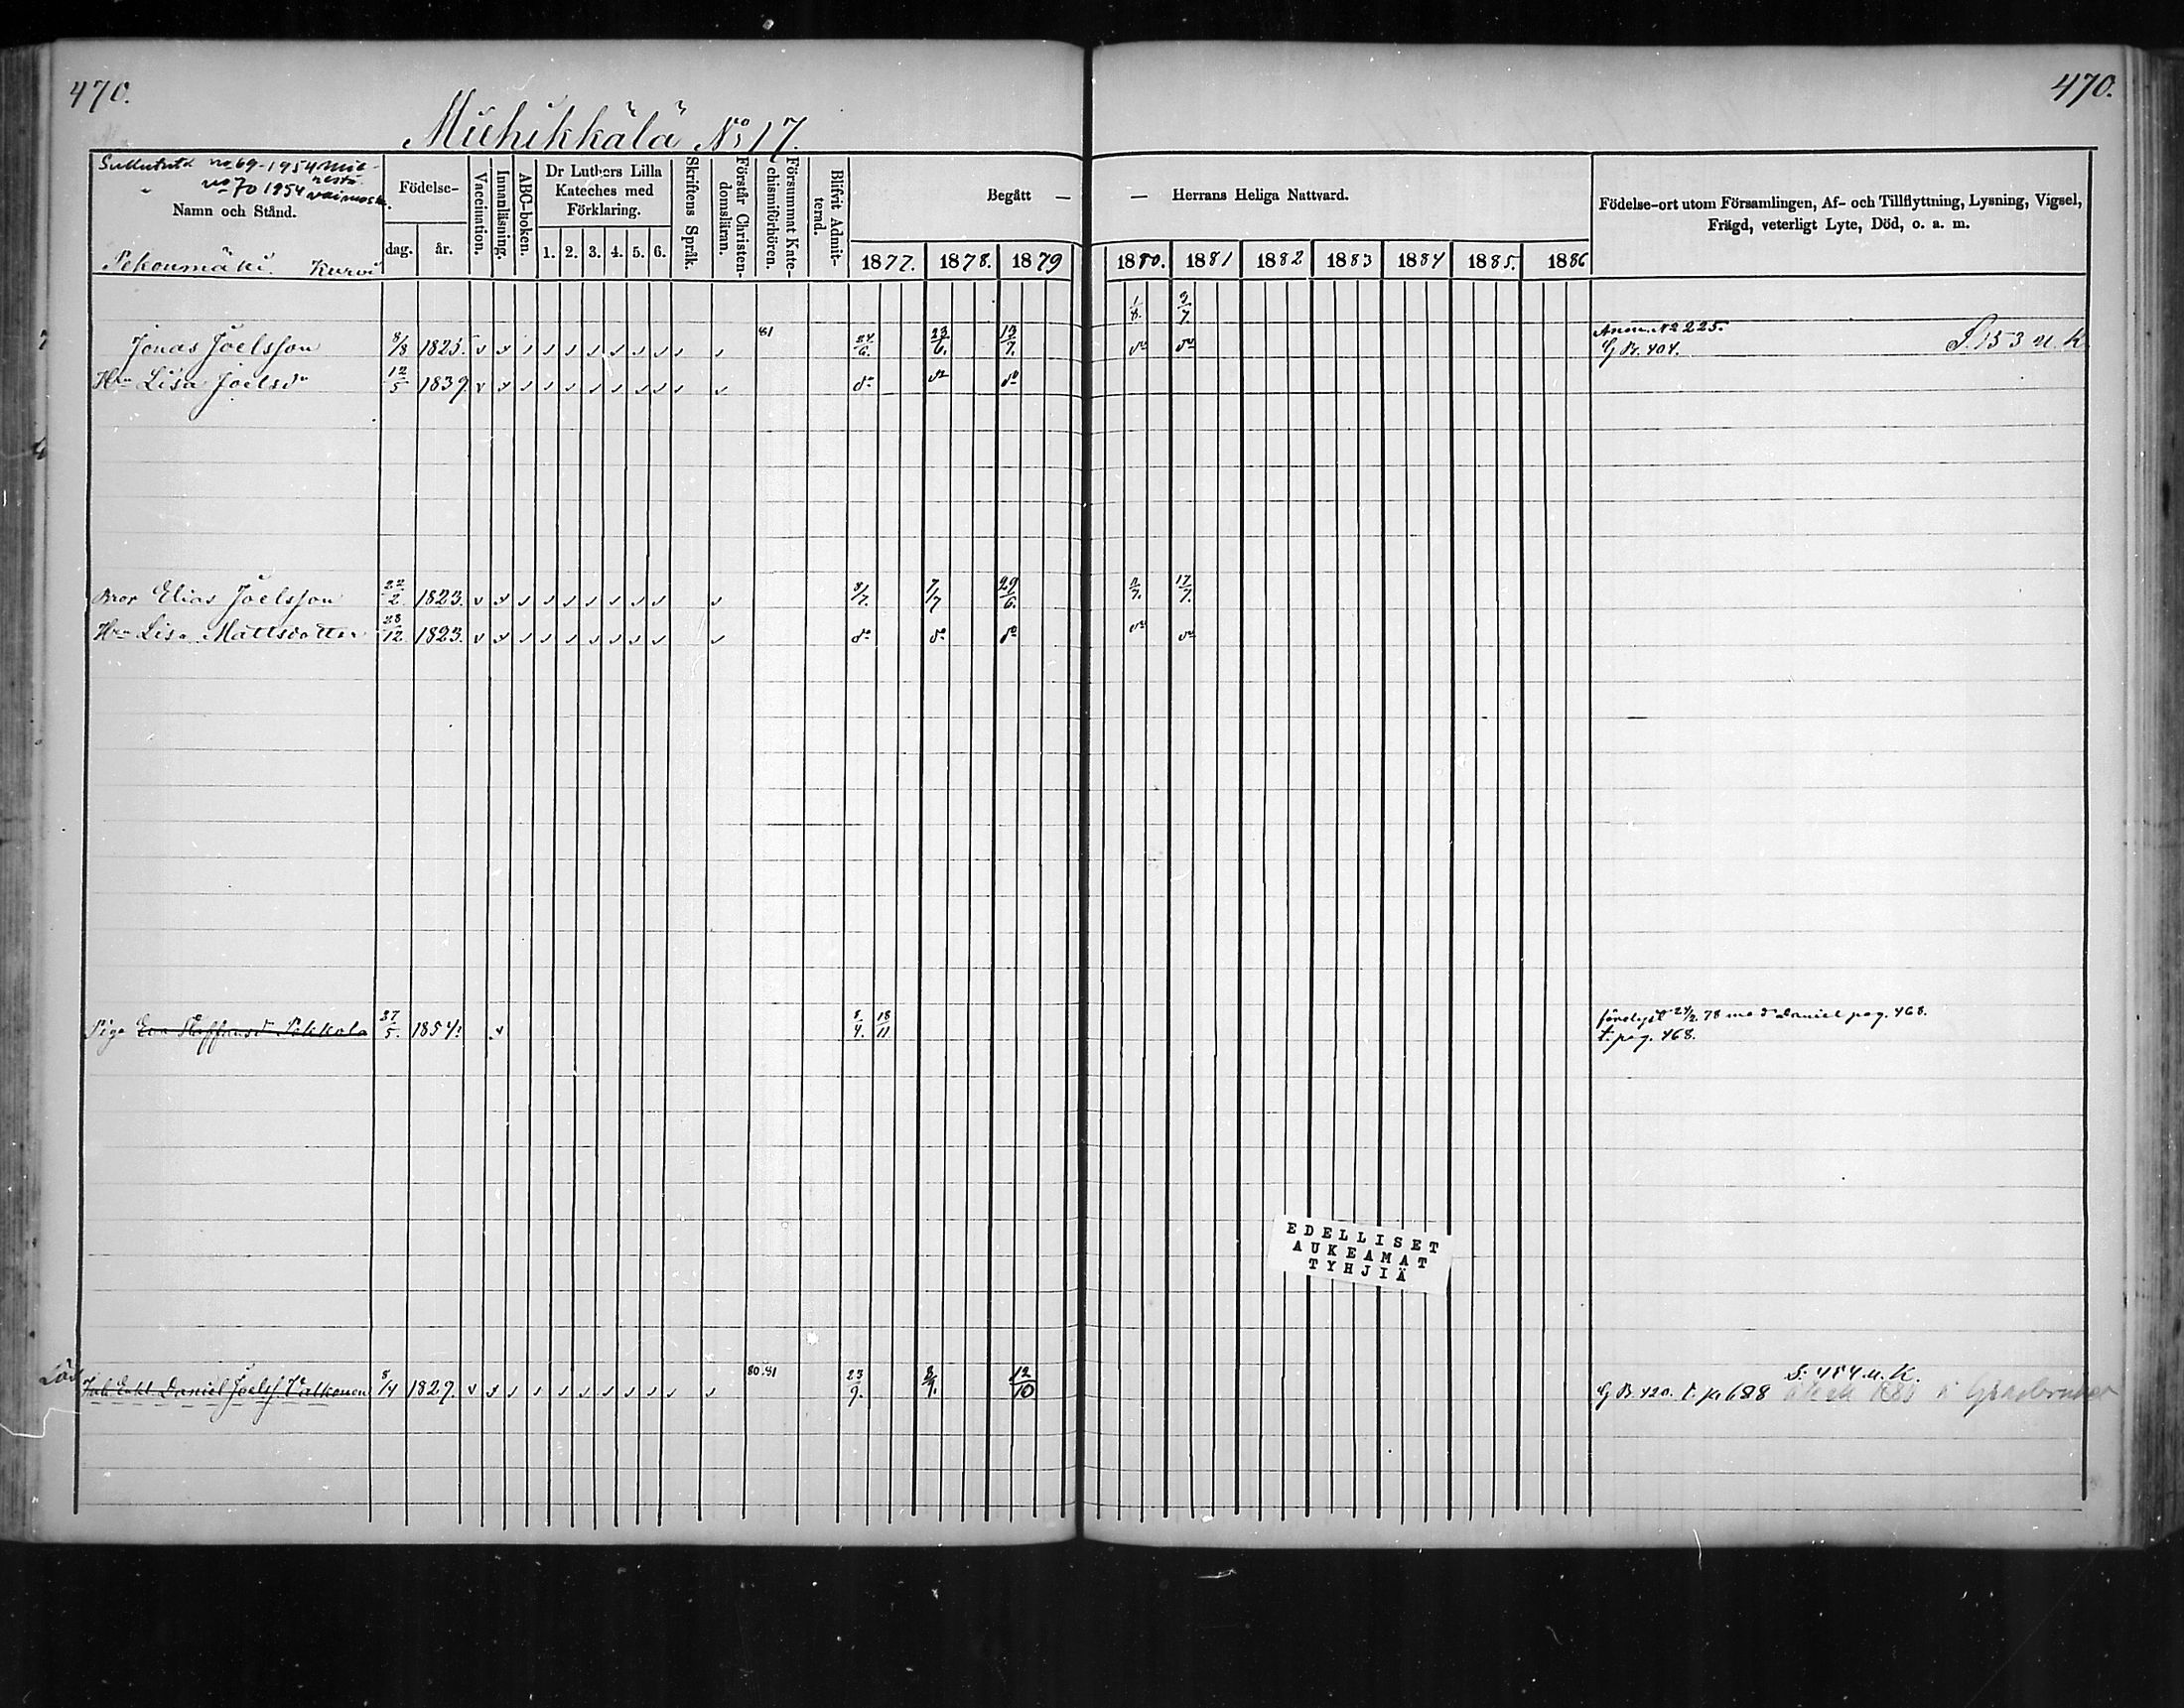 470.
470.
Miehikkälä No 17.
no 69-1954 mie-
" no 70 1954 vaimosta.
Namn och Stånd.
Pekonmäki. Kurvi
Födelse-
dag. år.
Vaccination.
Innanläsning.
ABC-boken.
Dr Luthers Lilla
Kateches med
Förklaring.
1. 2. 3. 4. 5. 6.
Skriftens Språk.
Förstår Christen-
domsläran.
Försummat Kate-
chismiförhören.
Blifvit Admit-
terad.
Begått —
— Herrans Heliga Nattvard.
1877. 1878. 1879 1880. 1881 1882 1883 1884 1885. 1886
Födelse-ort utom Församlingen, Af- och Tillflyttning, Lysning, Vigsel,
Frägd, veterligt Lyte, Död, o. a. m.
1/8. 3/7.
Jonas Joelsson 8/8 1825. 81 24/6. 23/6. 13/7. do do Anm. No 225.
G B. 404. S. 153 u. K.
Hu Lisa Joelsdr 12/5 1839. do do do
Bror Elias Joelsson 22/2 1823. 8/7. 7/7 29/6. 17/7.
Hu Lisa Mattsdotter 28/12 1823. do do do do do
Piga Eva Staffansdr Pekkola 27/5. 1854. 8/4. 18/11 förelyst 24/2. 78 med Daniel pag. 468.
t. pag. 468.
Enkl. Daniel Joelss. Valkonen 8/4 1829. 80.81 23/9. 12/10 G B. 420. t. pa 688
S. 484 u. K.
EDELLISET
AUKEAMAT
TYHJIÄ